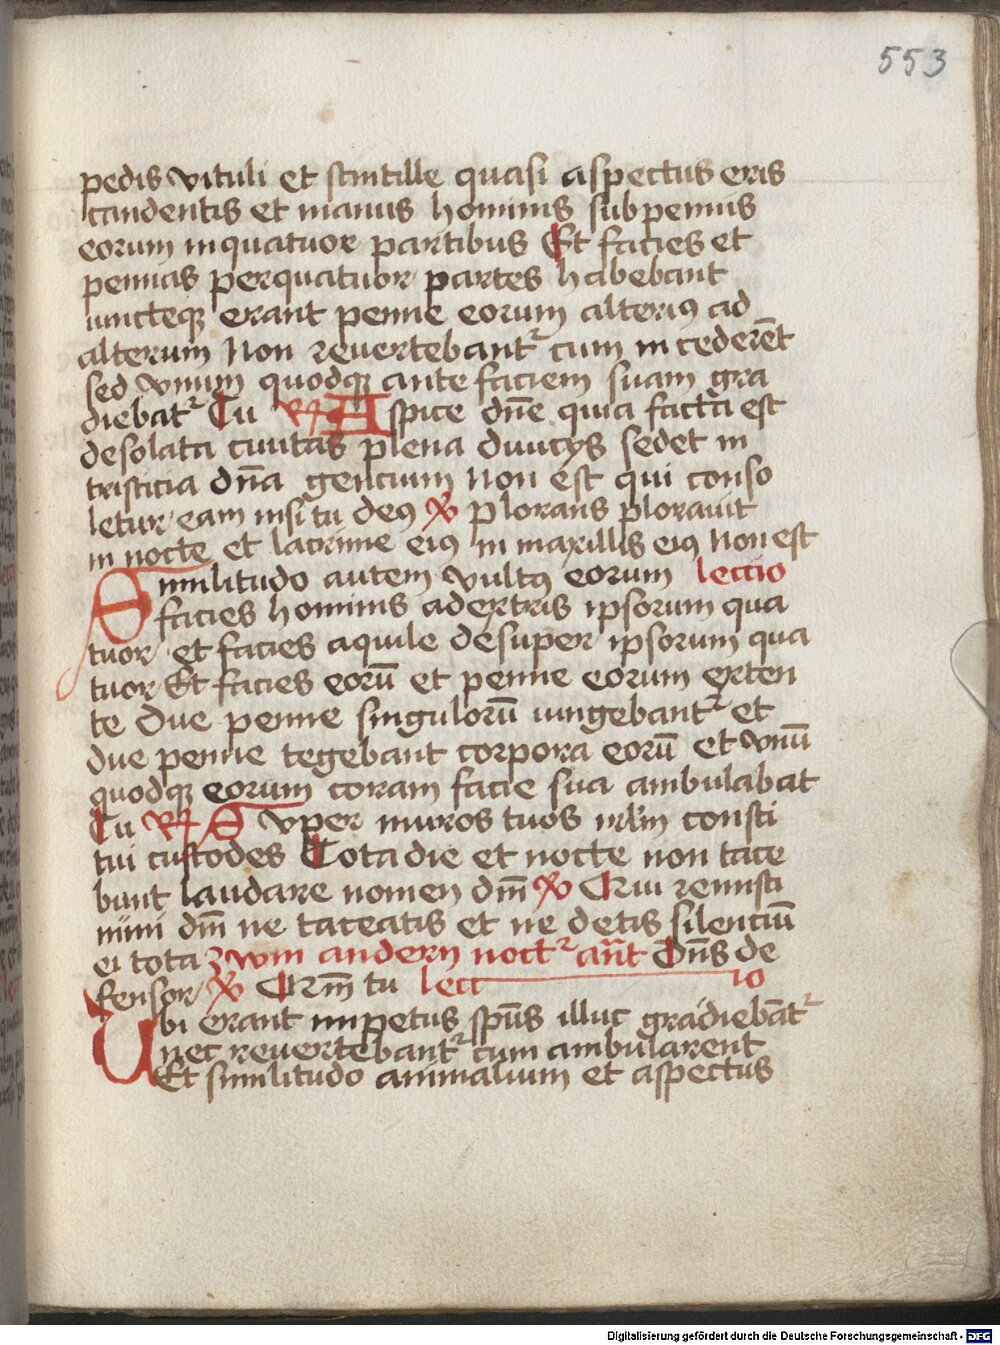 553
pedis vituli et scintille quasi aspectus eris
candentis et manus hominis sub pennis
eorum in quatuor partibus Et facies et
pennas per quatuor partes habebant
iuncteqꝫ erant penne eorum alteriꝰ ad
alterum Non reuertebant᷑ cum incederēt
sed vnum quodqꝫ ante faciem suam gra
diebat᷑ Tu ℟ Aspice dn̄e quia facta est
desolata ciuitas plena diuicijs sedet in
tristicia dn̄a gencium Non est qui conso
letur eam nisi tu deꝰ ℣ Plorans plorauit
in nocte et lacrime eiꝰ in maxillis eiꝰ Non est
Similitudo autem vultꝰ eorum leccio
facies hominis a dextris ipsorum qua
tuor et facies aquile desuper ipsorum qua
tuor Et facies eorū et penne eorum exten
te Due penne singulorū iungebant᷑ et
due penne tegebant corpora eorū et vnū
quodqꝫ eorum coram facie sua ambulabat
Tu ℟ Super muros tuos irl̄m consti
tui custodes Tota die et nocte non tace
bunt laudare nomen dn̄i ℣ Qui reminisci
mini dn̄i ne taceatis et ne detis silenciū
ei tota zwm andern noct᷑ an̄t Dn̄s de
fensor ℣ Qm̄ tu leccio
Ubi erant impetus sp̄us illuc gradiebāt᷑
nec reuertebant᷑ cum ambularent
Et similitudo animalium et aspectus
Digitalisierung gefördert durch die Deutsche Forschungsgemeinschaft - DFG